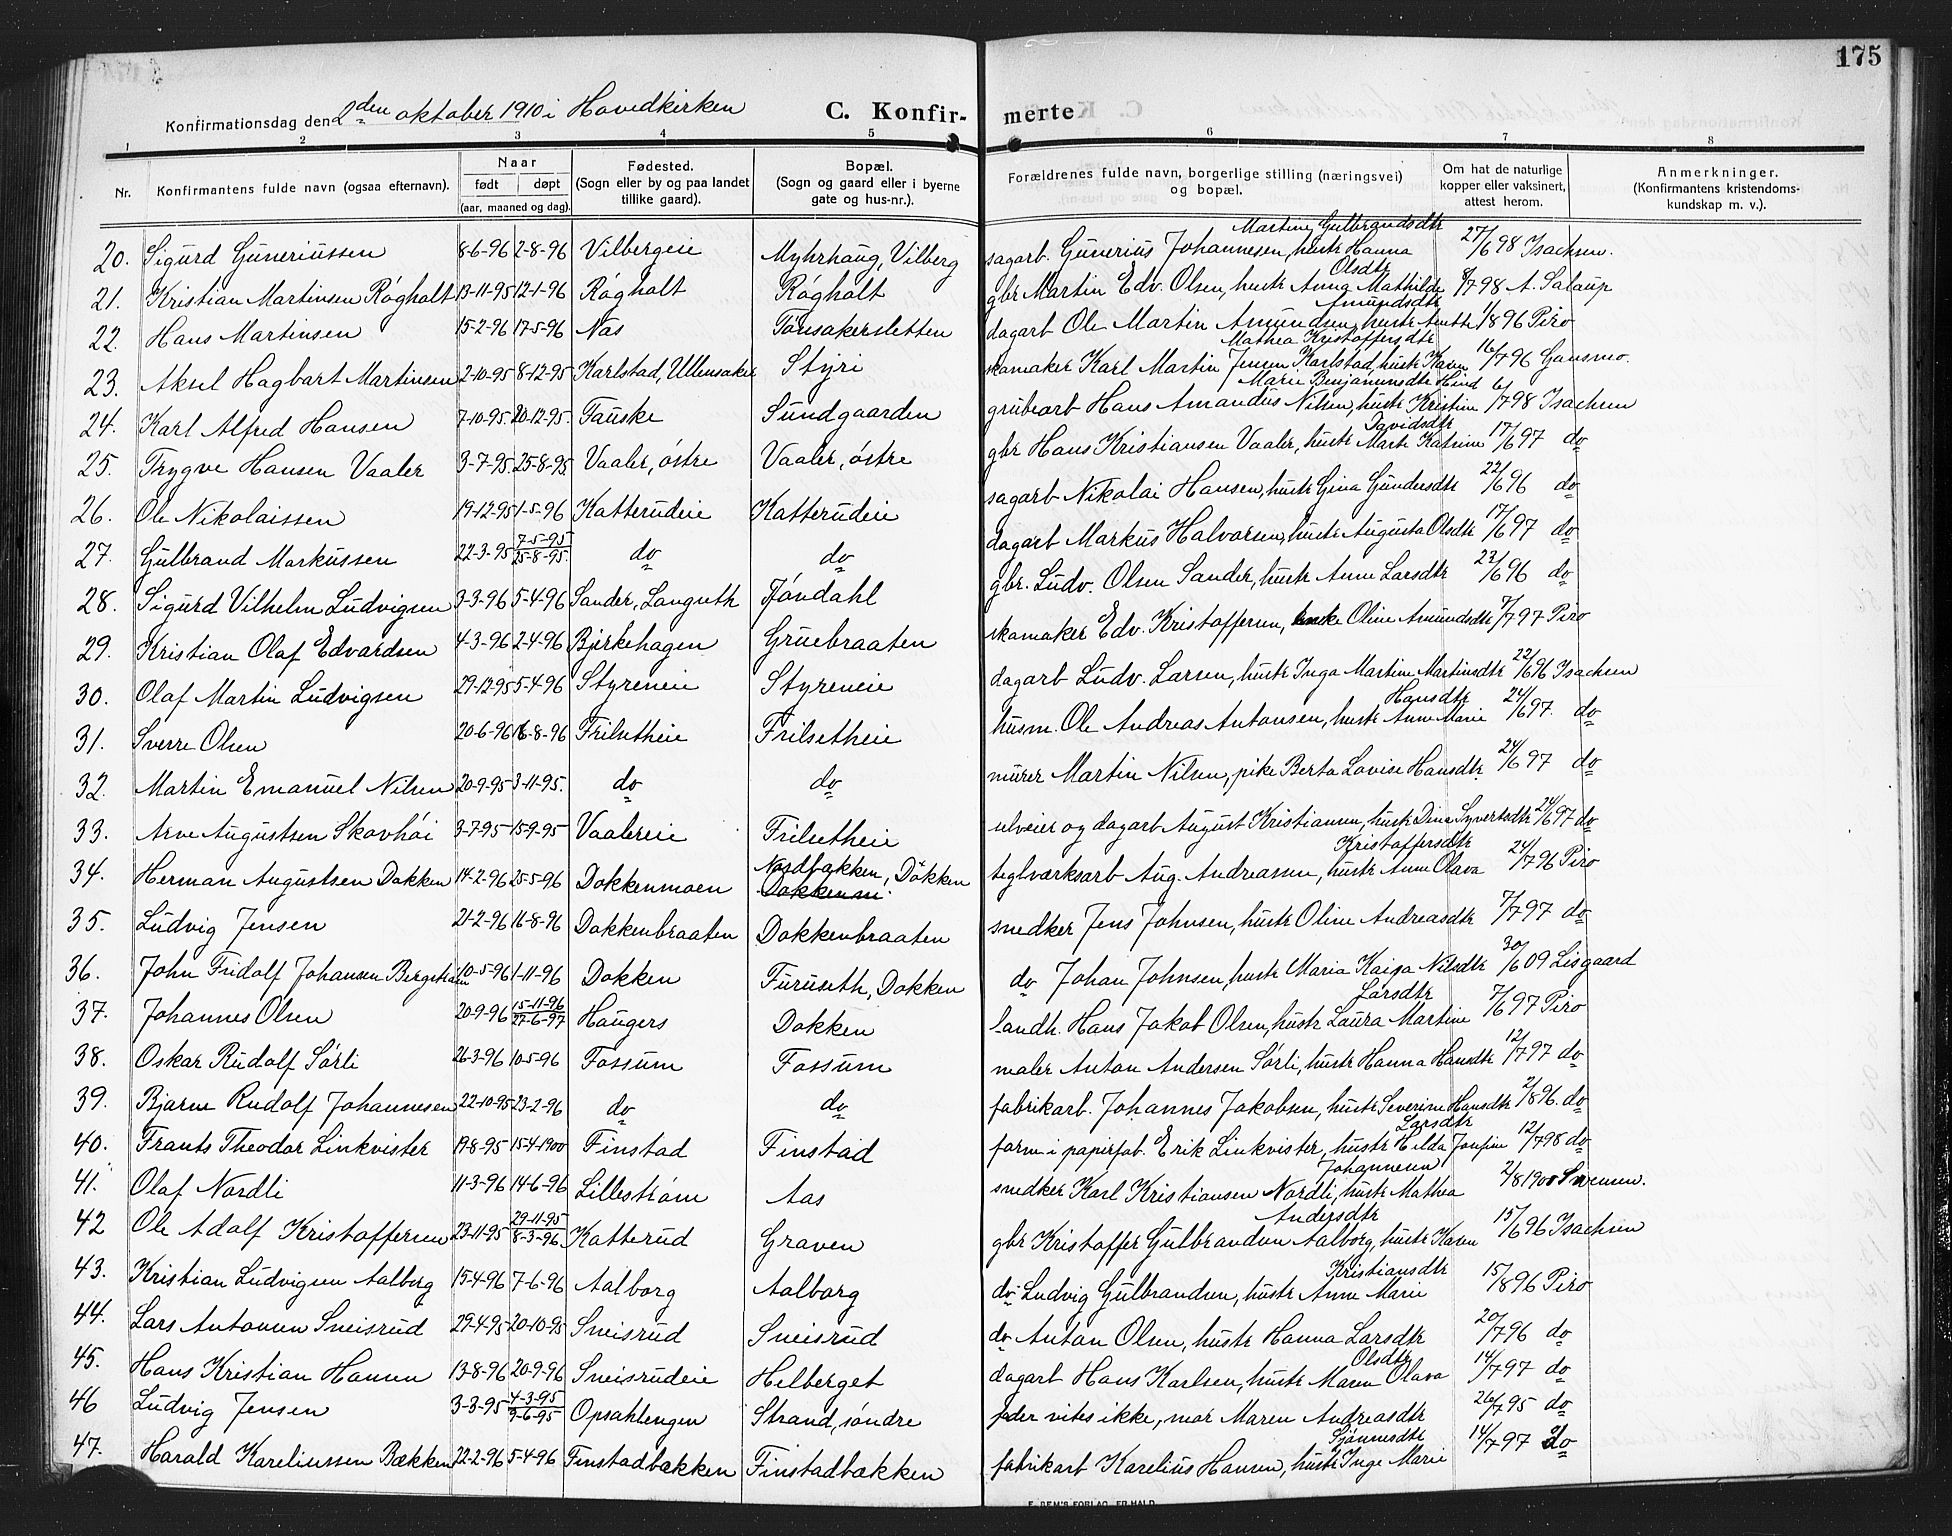 175
Konfirmationsdag den 2den oktober 1910 i Hovedkirken
C. Konfir- merte
1 2 3 4 5 6 7 8
Nr. Konfirmantens fulde navn (ogsaa efternavn). Naar født døpt (aar, maaned og dag). Fødested. (Sogn eller by og paa landet tillike gaard). Bopæl. (Sogn og gaard eller i byerne gate og hus-nr.). Forældrenes fulde navn, borgerlige stilling (næringsvei) og bopæl. Om hat de naturlige kopper eller vaksinert, attest herom. Anmerkninger. (Konfirmantens kristendoms- kundskap m. v.).
20. Sigurd Guneriussen 8-6-96 2-8-96 Vilbergeie Myhrhaug, Vilberg sagarb. Gunerius Johannesen, hustr Hanna Martine Gulbrandsdtr 27/6 98 Isachsen.
21. Kristian Martinsen Røgholt 13-11-95 12-1-96 Røgholt Røgholt gbr Martin Edv. Olsen, hustr Anna Mathilde Olsdtr 8/7 98 A. Salaup
22. Hans Martinsen 15-2-96 17-5-96 Nas Tønsakersletten dagarb Ole Martin Amundsen, hustr Anette Amundsdtr 1/8 96 Piro
23. Aksel Hagbart Martinsen 2-10-95 8-12-95 Karlstad, Ullensaker Styri skomaker Karl Martin Jensen Karlstad, hustr Karen Mathea Kristoffersdtr 16/7 96 Gansmo.
24. Karl Alfred Hansen 7-10-95. 20-12-95. Fauske Sundgaarden grubearb Hans Amandus Nilsen, hustr Kristine Marie Benjaminsdtr Hind 6/7 98 Isachsen
25. Trygve Hansen Vaaler 3-7-95. 25-8-95. Vaaler, østre Vaaler, østre gbr Hans Kristiansen Vaaler, hustr Marte Katrine Davidsdtr 17/6 97 do
26. Ole Nikolaissen 19-12-95 1-5-96 Katterudeie Katterudeie sagarb Nikolai Hansen, hustr Gina Gundersdtr 22/6 96 do
27. Gulbrand Markussen 22-3-95 7-5-95 25-8-95. do do dagarb Markus Halvorsen, hustr Augusta Olsdtr 17/6 97 do
28. Sigurd Vilhelm Ludvigsen 3-3-96 5-4-96 Sander, Langseth Jøndahl gbr. Ludv. Olsen Sander, hustr Anne Larsdtr 23/6 96 do
29. Kristian Olaf Edvardsen 4-3-96 2-4-96 Bjerkehagen Gruebraaten skomaker Edv. Kristoffersen, enke Oline Amundsdtr 7/7 97 Piro
30. Olaf Martin Ludvigsen 29-12-95 5-4-96 Styreneie Styreneie dagarb Ludv. Larsen, hustr Inga Martine Martinsdtr 22/6 96 Isachsen
31. Sverre Olsen 20-6-96 16-8-96 Frilsetheie Frilsetheie husm. Ole Andreas Antonsen, hustr Anne Marie Hansdtr 24/6 97. do
32. Martin Emanuel Nilsen 20-9-95 3-11-95. do do murer Martin Nilsen, pike Berta Lovise Hansdtr. 24/6 97 do
33. Arve Augustsen Skovhøi 3-7-95 15-9-95 Vaalereie Frilsetheie selveier og dagarb August Kristiansen, hustr Dina Syvertsdtr 24/6 97 do
34. Herman Augustsen Dokken 14-2-96 25-5-96 Dokkenmoen Nordbakken, Dokken Dokkenmi teglværksarb Aug. Andreassen, hustr Anne Olava Kristoffersdtr 24/7 96 Piro
35. Ludvig Jensen 21-2-96 16-8-96 Dokkenbraaten Dokkenbraaten snedker Jens Johnsen, hustr Oline Andreasdtr 7/7 97 do
36. John Fridolf Johansen Bergstrøm 10-5-96 1-11-96 Dokken Furuseth, Dokken do Johan Johnsen, hustr Maria Kaisa Nilsdtr 30/6 09 Lisgaard
37. Johannes Olsen 20-9-96 15-11-96 27-6-97 Haugers Dokken landh. Hans Jakob Olsen, hustr Laura Martine Larsdtr 7/6 97 Piro
38. Oskar Rudolf Sørli 26-3-96 10-5-96 Fossum Fossum maler Anton Andersen Sørli, hustr Hanna Hansdtr 12/7 97 do
39. Bjarne Rudolf Johannesen 22-10-95 23-2-96 do do fabrikarb. Johannes Jakobsen, hustr Severine Hansdtr 2/8 96. do
40. Frants Theodor Linkvister 19-8-95 15-4-1900 Finstad Finstad form. i papirfab. Erik Linkvister, hustr Hilda Josefine Larsdtr 12/7 98 do
41. Olaf Nordli 11-3-96 14-6-96 Lillestrøm Aas snedker Karl Kristiansen Nordli, hustr Mathea Johannesen 2/8 1900 Svensen.
42 Ole Adolf Kristoffersen 23-11-95 29-11-95 8-3-96 Katterud Graven gbr Kristoffer Gulbrandsen Aalborg, hustr Karen Andersdtr 15/6 96 Isachsen
43. Kristian Ludvigsen Aalborg 15-4-96 7-6-96 Aalborg Aalborg do Ludvig Gulbrandsen, hustr Anne Marie Kristiansdtr 15/8 96 Piro
44. Lars Antonsen Sneisrud 29-4-95 20-10-95 Sneisrud Sneisrud do Anton Olsen, hustr Hanna Larsdtr 20/7 96 do
45. Hans Kristian Hansen 13-8-96 20-9-96 Sneisrudeie Helberget dagarb Hans Karlsen, hustr Maren Olava Olsdtr 14/7 97 do
46 Ludvig Jensen 3-3-95 4-3-95 9-6-95 Opsahlengen Strand, søndre fader vites ikke, mor Maren Andreasdtr 26/7 95 do
47. Harald Kareliussen Bækken 22-2-96 5-4-96 Finstadbakken Finstadbakken fabrikarb Karelius Hansen, hustr Inge Marie Sjønnesdtr 14/7 97 do
E. SEM'S FORLAG, FR.HALD